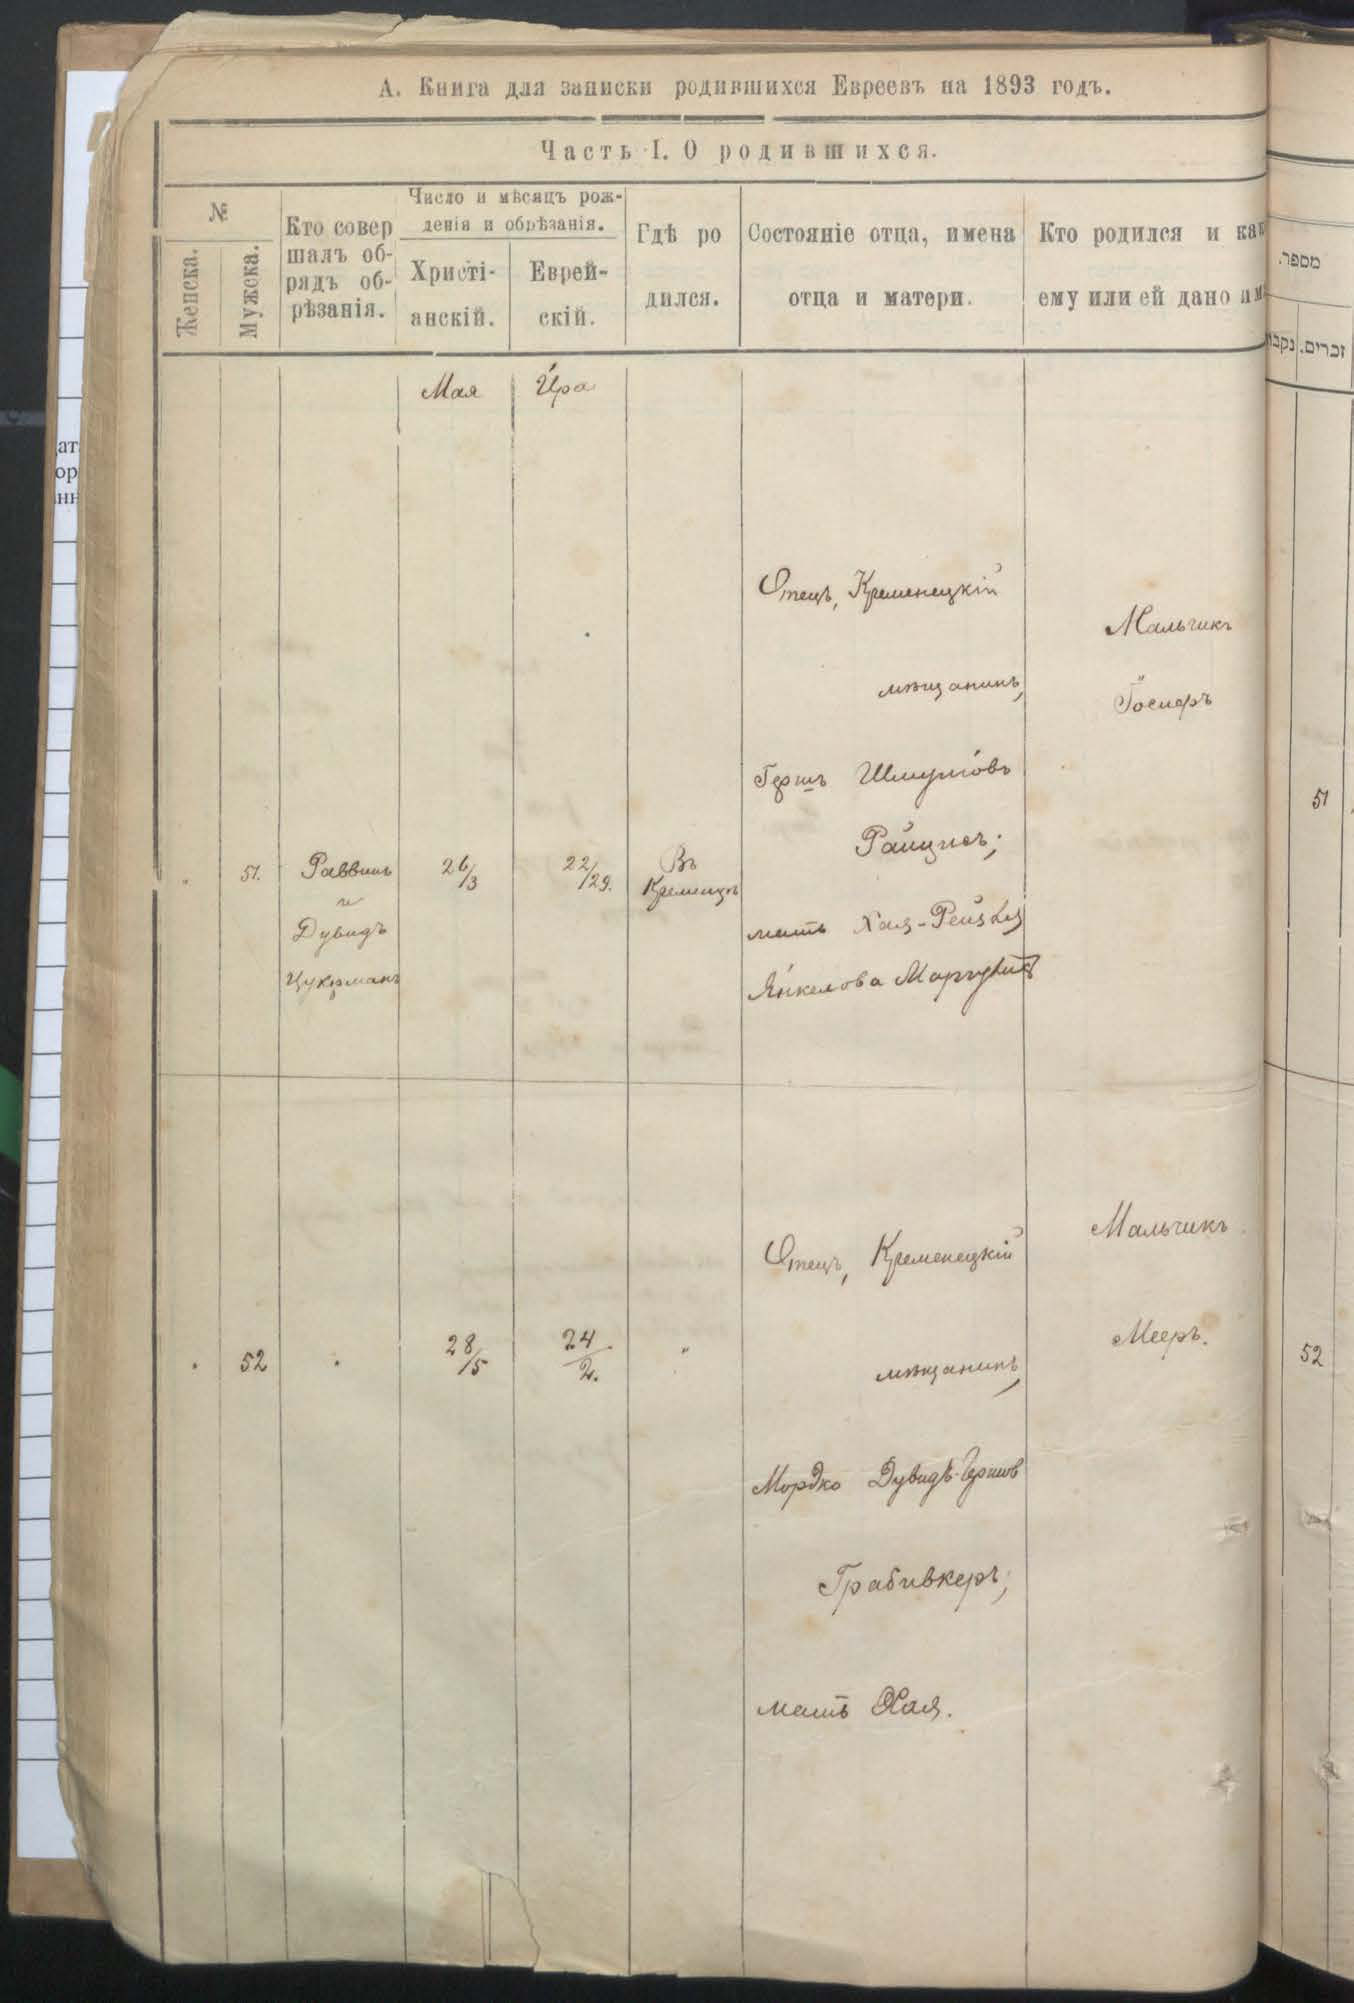 А. Книга для записки родившихся Евреевъ на 1893 годъ.
Часть I. О родившихся.
№
Женска.
Мужеска.
Кто совер
шалъ об-
рядъ об-
рѣзанія.
Число и мѣсяцъ рож-
денія и обрѣзанія.
Христі-
анскій.
Еврей-
скій.
Гдѣ ро
дился.
Состояніе отца, имена
отца и матери.
Кто родился и как
ему или ей дано им
מספר.
זכרים.
נקבו
Мая
Ира
51.
Раввинъ
и
Дувидъ
Цукрманъ
26/3
22/29.
Въ
Кременцѣ
Отецъ, Кременецкій
мѣщанинъ,
Гершъ Шмулювъ
Райцисъ;
мать Хая-Рейзля
Янкелова
Мальчикъ
51
52
28/5
24/2.
"
Отецъ, Кременецкій
мѣщанинъ,
Мордко Дувидъ-Гершов
Грабивкеръ;
мать Хая.
Мальчикъ
Мееръ.
52